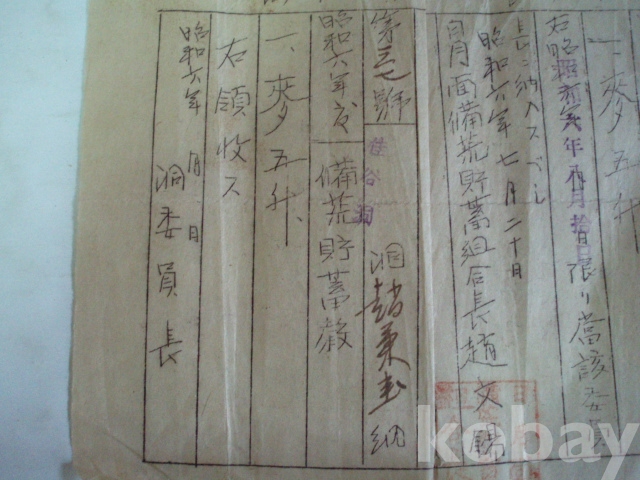 一、麥五升
右昭和六年八月拾日限リ當該委員
長ニ納入スベシ
昭和六年七月二十日
月面備荒貯蓄組合長趙文錫
第三七號 桂谷洞 洞趙東 納
昭和六年度備荒貯蓄穀
一、麥五升
右領收ス
昭和六年 月 日
洞委員長
kobay